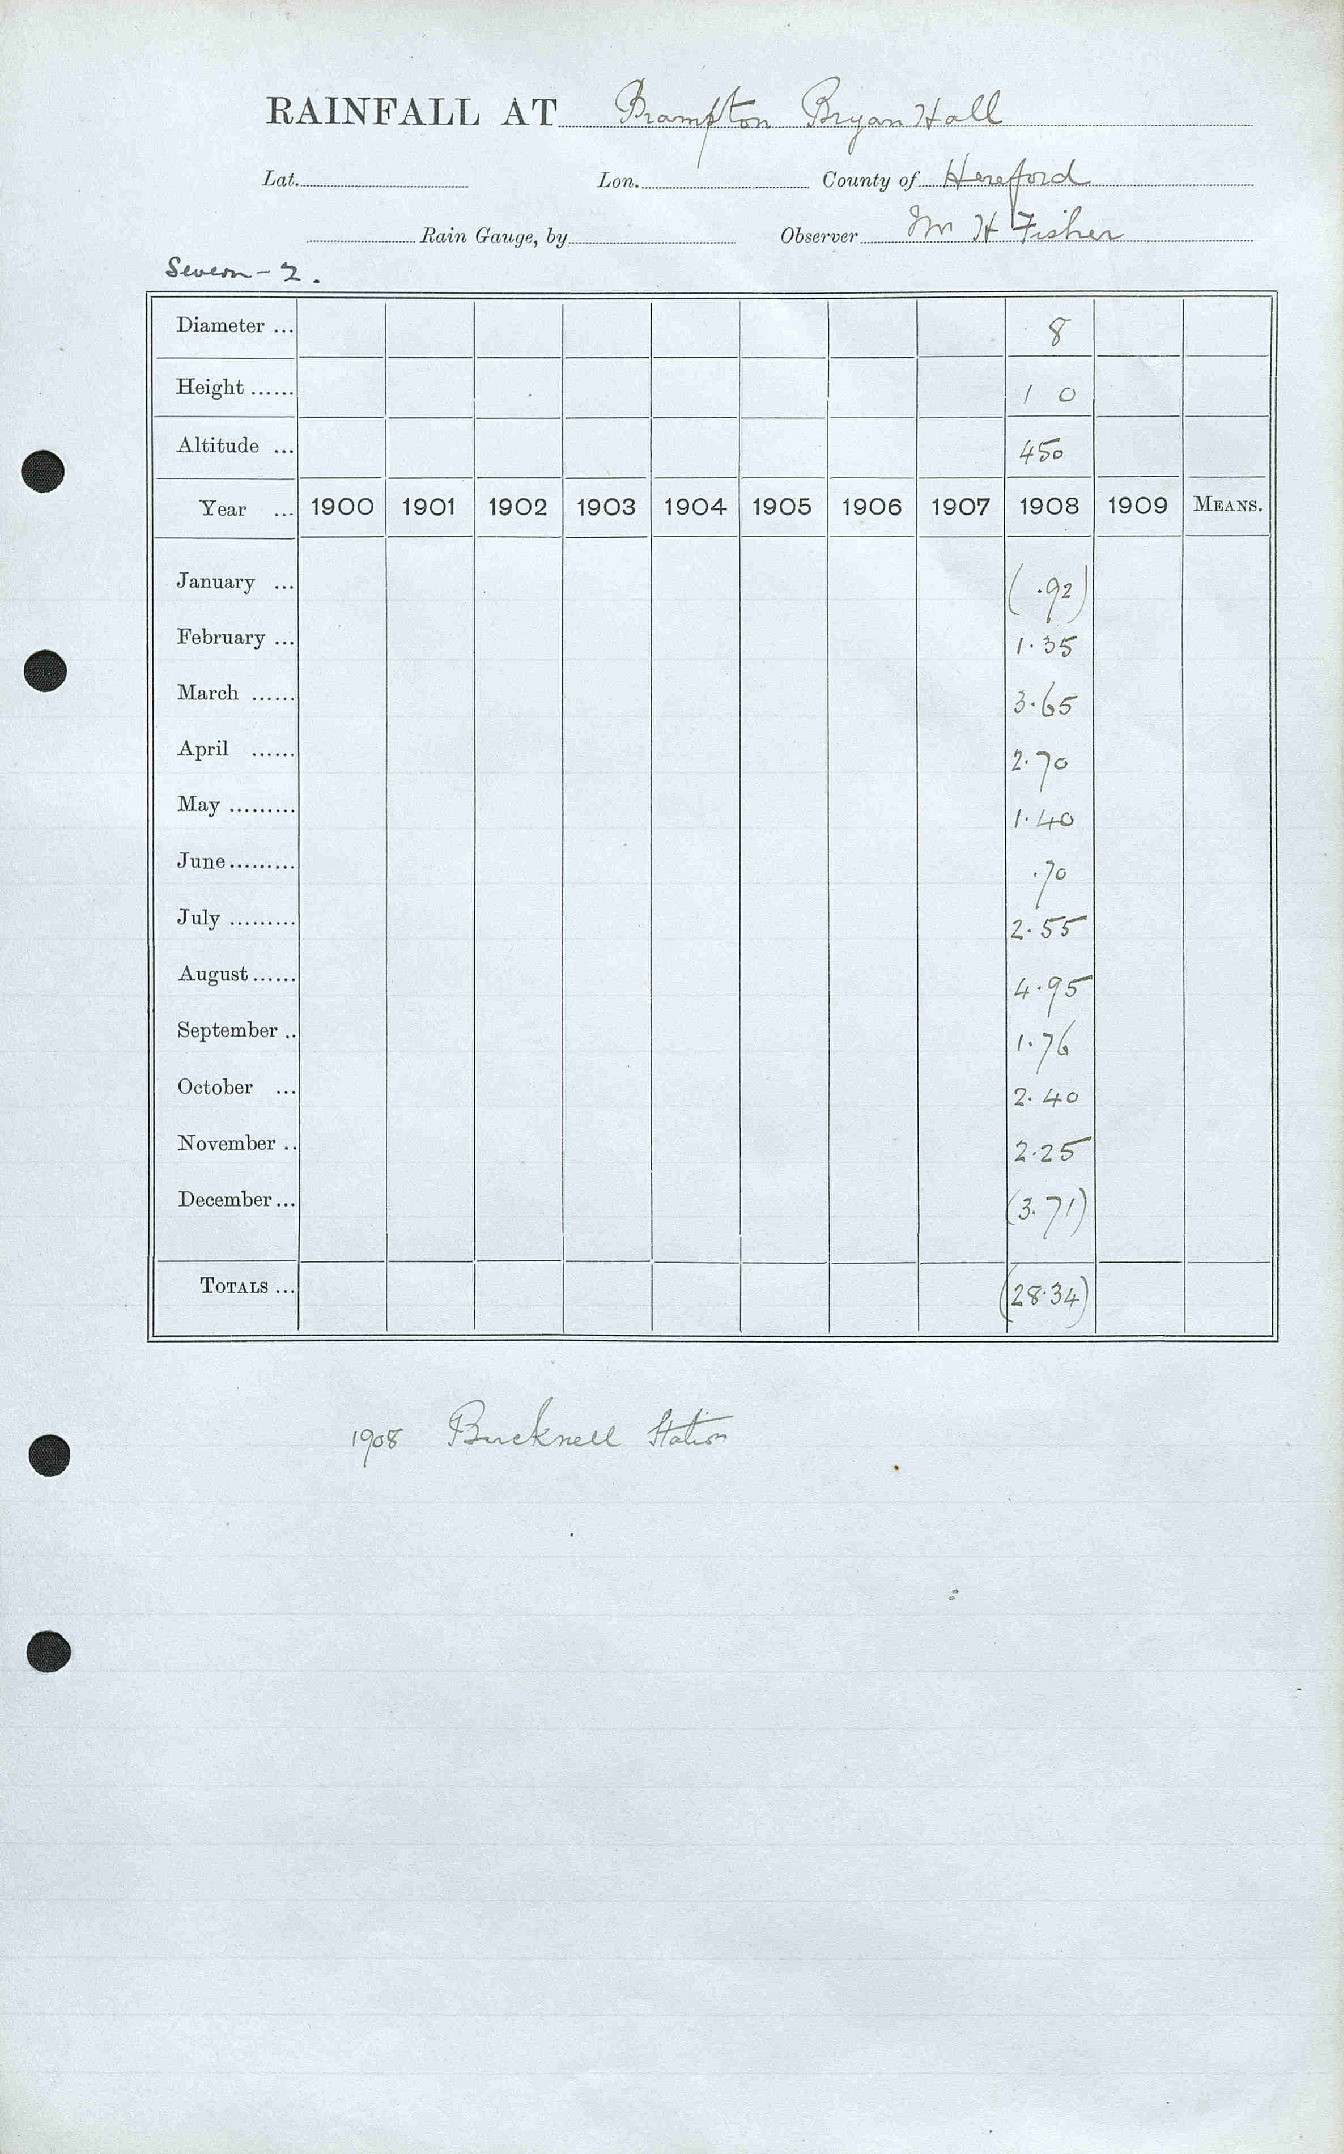 RAINFALL AT Brampton Bryan Hall
Lat. Lon. County of Hereford
Rain Gauge, by Observer Mr H Fisher
Severn - 2.
Diameter ... 8
Height ...... 1 0
Altitude ... 450
Year ... 1900 1901 1902 1903 1904 1905 1906 1907 1908 1909 MEANS.
January ... (.92)
February ... 1.35
March ...... 3.65
April ...... 2.70
May ......... 1.40
June ......... .70
July ......... 2.55
August ...... 4.95
September .. 1.76
October ... 2.40
November .. 2.25
December ... (3.71)
TOTALS ... (28.34)
1908 Bucknell Station